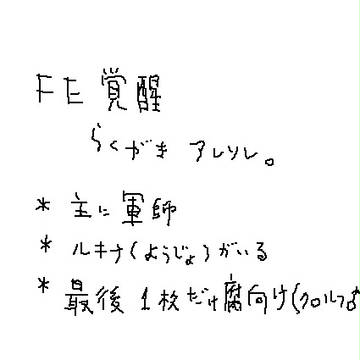 FE覚醒
らくがき アレソレ。
* 主に軍師
* ルキナ(ようじょ)がいる
* 最後1枚だけ腐向け(クロルフ♂